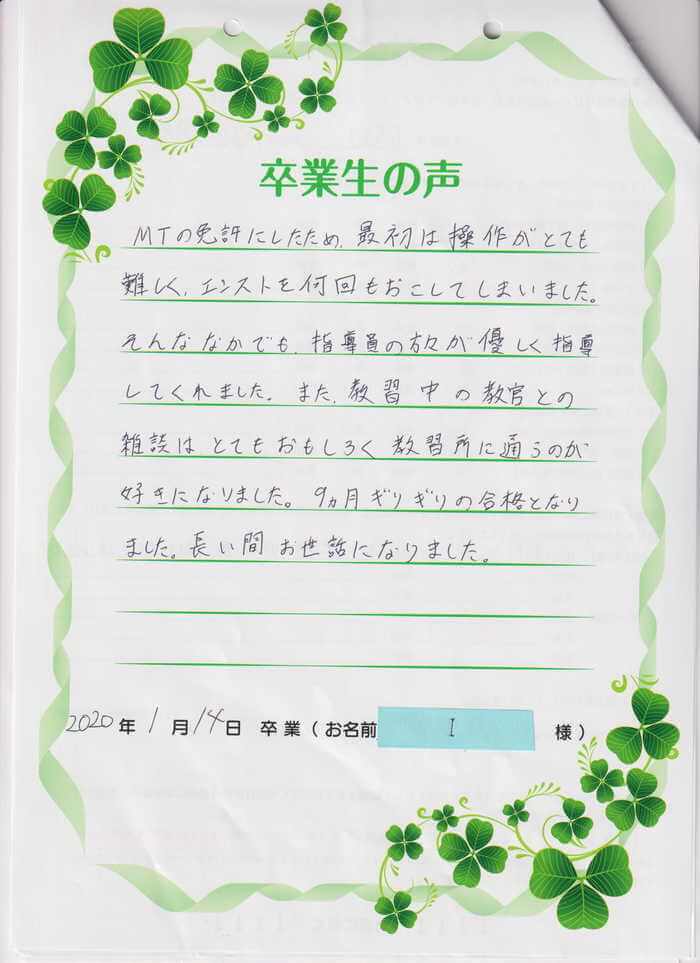 卒業生の声
MTの免許にしたため、最初は操作がとても
難しく、エンストを何回もおこしてしまいました。
そんななかでも、指導員の方々が優しく指導
してくれました。また、教習中の教官との
雑談はとてもおもしろく教習所に通うのが
好きになりました。9ヵ月ギリギリの合格となり
ました。長い間お世話になりました。
2020年1月14日 卒業(お名前 I 様)